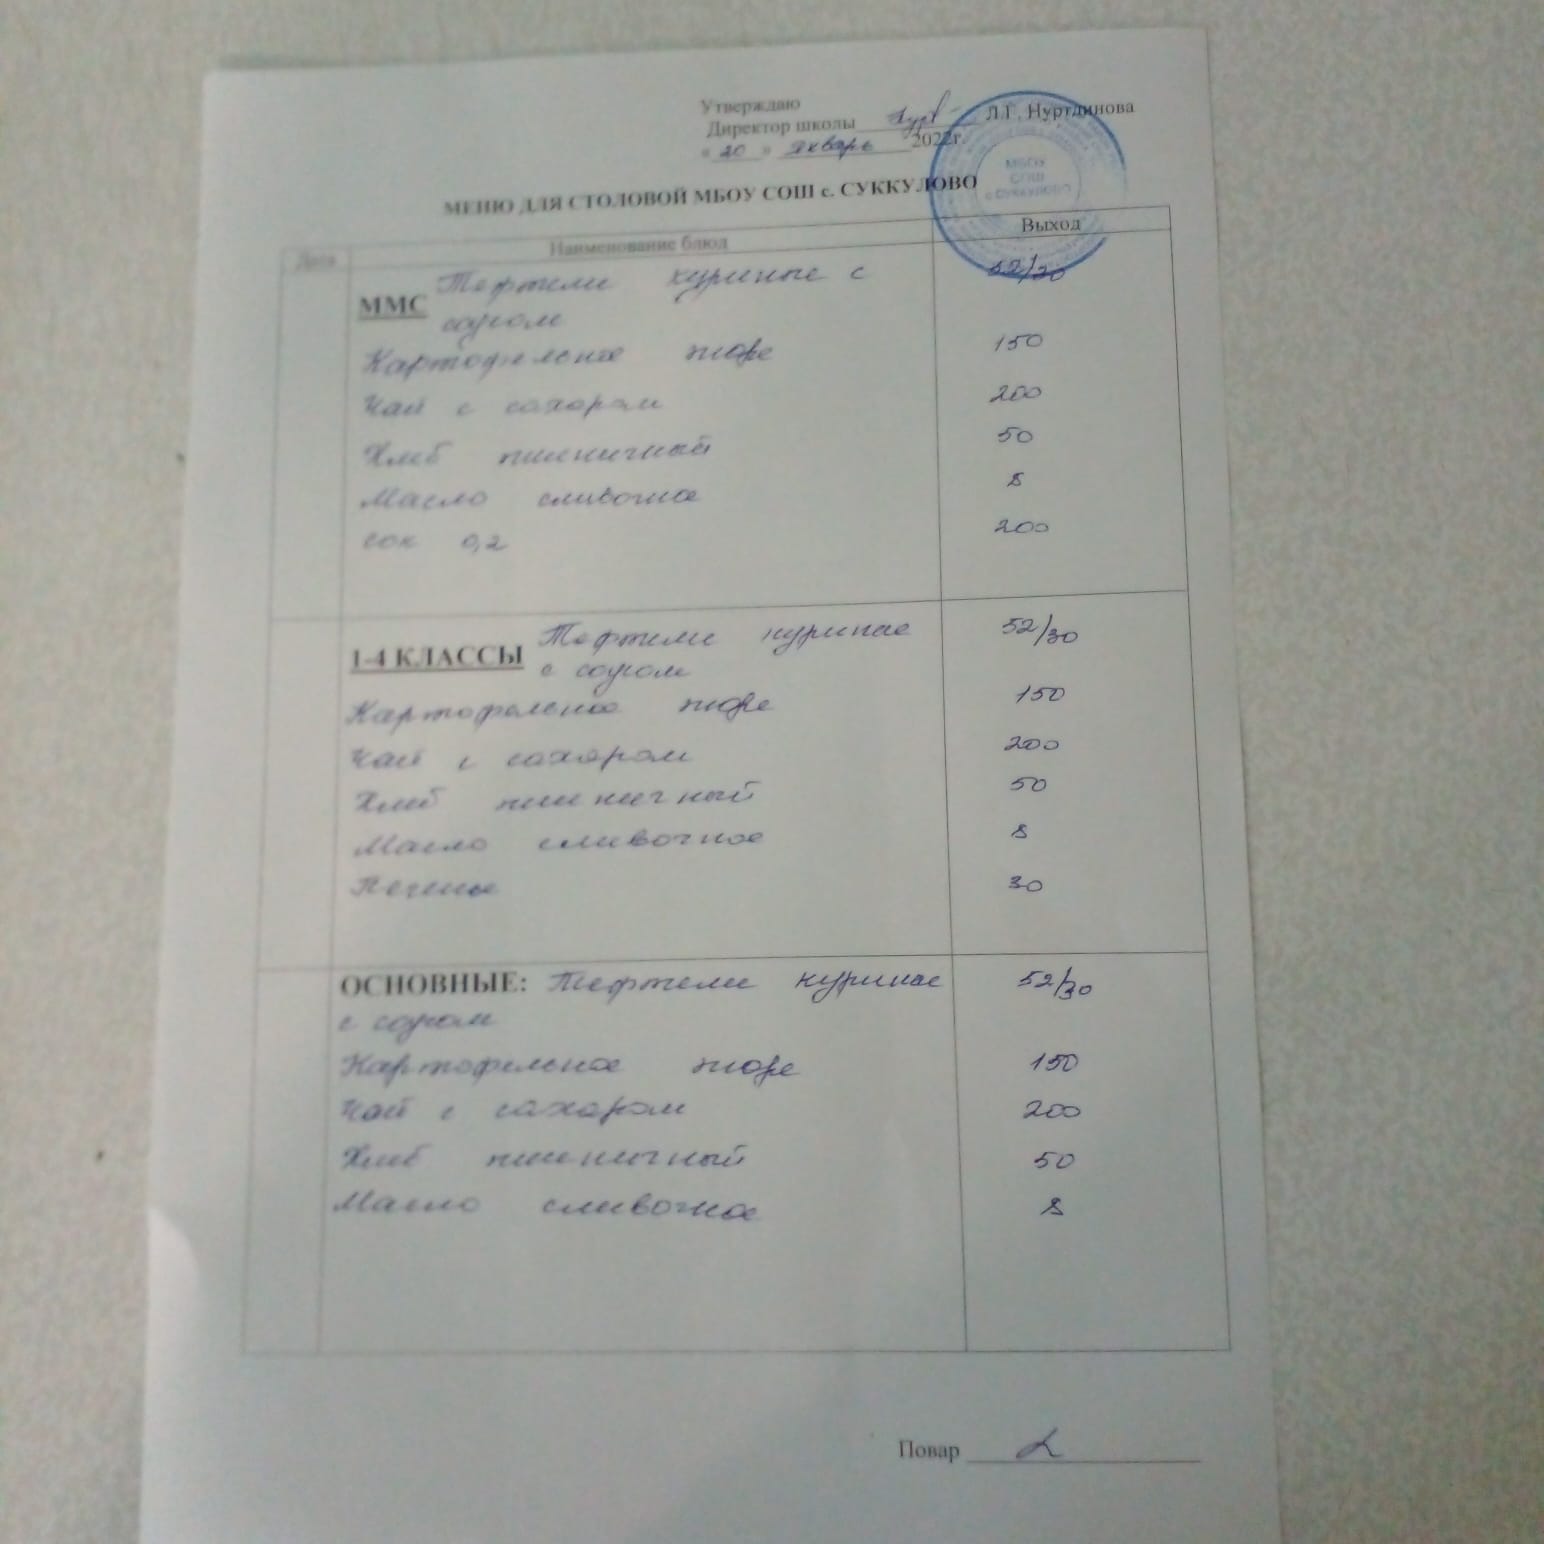 Утверждаю
Директор школы Л.Г. Нуртдинова
« 20 » январь 2022г.
МБОУ
СОШ
с.СУККУЛОВО
МЕНЮ ДЛЯ СТОЛОВОЙ МБОУ СОШ с. СУККУЛОВО
Дата Наименование блюд Выход
ММС Тефтели куриные с 52/30
соусом
Картофельное пюре 150
Чай с сахаром 200
Хлеб пшеничный 50
Масло сливочное 8
сок 0,2 200
1-4 КЛАССЫ Тефтели куриные 52/30
с соусом
Картофельное пюре 150
Чай с сахаром 200
Хлеб пшеничный 50
Масло сливочное 8
Печенье 30
ОСНОВНЫЕ: Тефтели куриные 52/30
с соусом
Картофельное пюре 150
Чай с сахаром 200
Хлеб пшеничный 50
Масло сливочное 8
Повар